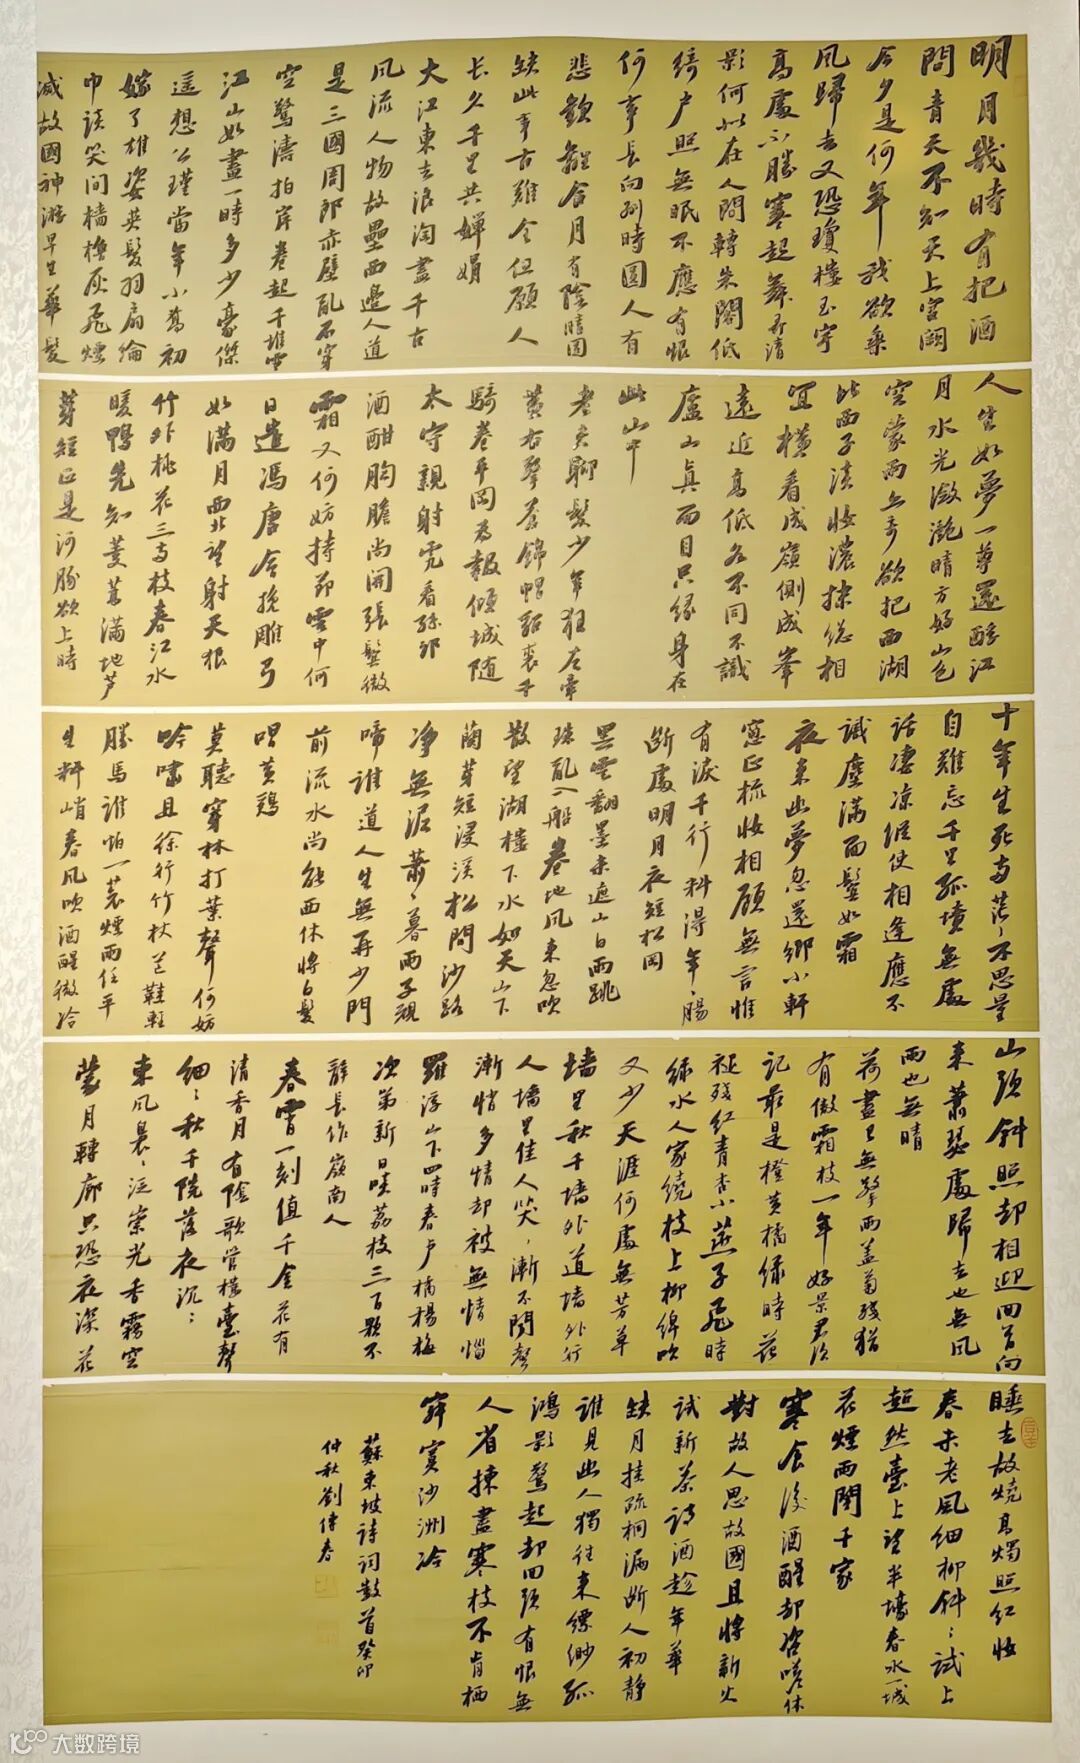 明月幾時有把酒
問青天不知天上宮闕
今夕是何年我欲乘
风歸去又恐瓊樓玉宇
高處不勝寒起舞弄清
影何似在人間轉朱閣低
綺户照無眠不應有恨
何事長向別時圓人有
悲歡離合月有陰晴圆
缺此事古難全但願人
长久千里共嬋娟
大江東去浪淘盡千古
风流人物故壘西邊人道
是三國周郎赤壁亂石穿
空驚濤拍岸卷起千堆雪
江山如畫一時多少豪傑
遥想公瑾當年小喬初
嫁了雄姿英發羽扇綸
巾談笑间檣櫓灰飛煙
滅故國神游早生華髮
人生如夢一尊還酹江
月水光瀲灩晴方好山色
空蒙雨亦奇欲把西湖
比西子淡妝濃抹總相
宜橫看成嶺側成峯
遠近高低各不同不識
廬山真面目只緣身在
此山中
老夫聊發少年狂左牽
黄右擎蒼錦帽貂裘千
騎卷平岡為報傾城随
太守親射虎看孫郎
酒酣胸膽尚開張鬢微
霜又何妨持節雲中何
日遣馮唐會挽雕弓
如满月西北望射天狼
竹外桃花三兩枝春江水
暖鴨先知蔞蒿满地芦
芽短正是河豚欲上時
十年生死兩茫々不思量
自難忘千里孤墳無處
話凄凉縱使相逢應不
識塵满面鬢如霜
夜來幽夢忽還鄉小軒
窗正梳妝相顧無言惟
有淚千行料得年々腸
斷處明月夜短松岡
黑雲翻墨未遮山白雨跳
珠亂入船卷地风來忽吹
散望湖樓下水如天山下
蘭芽短浸溪松間沙路
净無泥蕭々暮雨子規
啼誰道人生無再少門
前流水尚能西休將白髮
唱黄鷄
莫聽穿林打葉聲何妨
吟嘯且徐行竹杖芒鞋輕
勝馬誰怕一蓑煙雨任平
生料峭春风吹酒醒微冷
山頭斜照却相迎回首向
來蕭瑟處歸去也無风
雨也無晴
荷盡已無擎雨盖菊殘猶
有傲霜枝一年好景君須
記最是橙黄橘绿時花
褪残红青杏小燕子飛時
绿水人家繞枝上柳綿吹
又少天涯何處無芳草
墙里秋千墙外道墙外行
人墙里佳人笑々漸不聞聲
漸悄多情却被無情惱
羅浮山下四時春卢橘楊梅
次第新日啖荔枝三百顆不
辭長作嶺南人
春宵一刻值千金花有
清香月有陰歌管樓臺聲
细々秋千院落夜沉々
東风裊々泛崇光香霧空
蒙月轉廊只恐夜深花
睡去故燒高燭照红妆
春未老風细柳斜々試上
超然臺上望半壕春水一城
花煙雨闇千家
寒食後酒醒却咨嗟休
對故人思故國且將新火
試新茶詩酒趁年華
缺月挂疏桐漏斷人初静
誰見幽人獨往來缥缈孤
鴻影驚起却回頭有恨無
人省揀盡寒枝不肯栖
寂寞沙洲冷
蘇東坡詩词數首癸卯
仲秋劉傳春
大数跨境